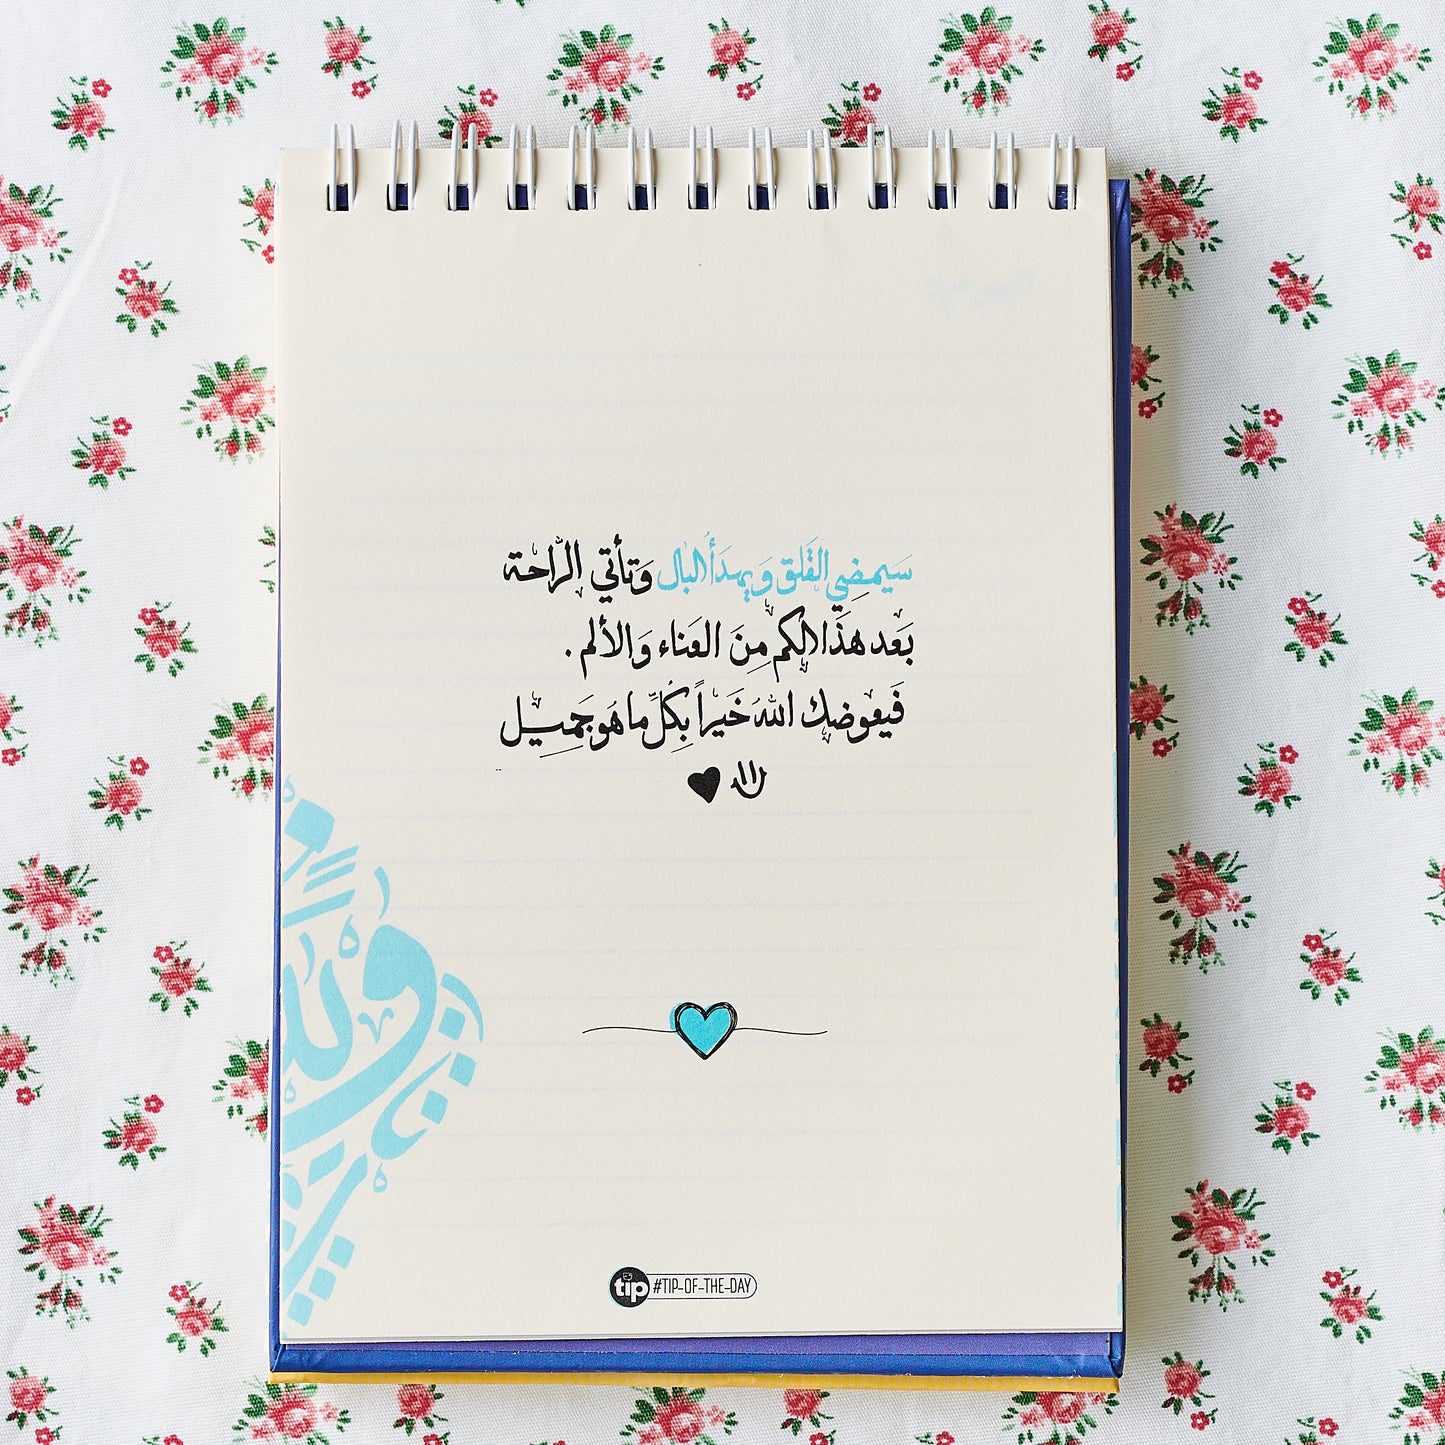 سَيمضِي القَلق وَيهدَأُ البال وَتأتي الراحة
بَعد هذَا الكم مِنَ العَناء وَالألم .
فَيعوضك اللهُ خَيراً بِكُلِّ ما هُو جَميل
tip #TIP-OF-THE-DAY